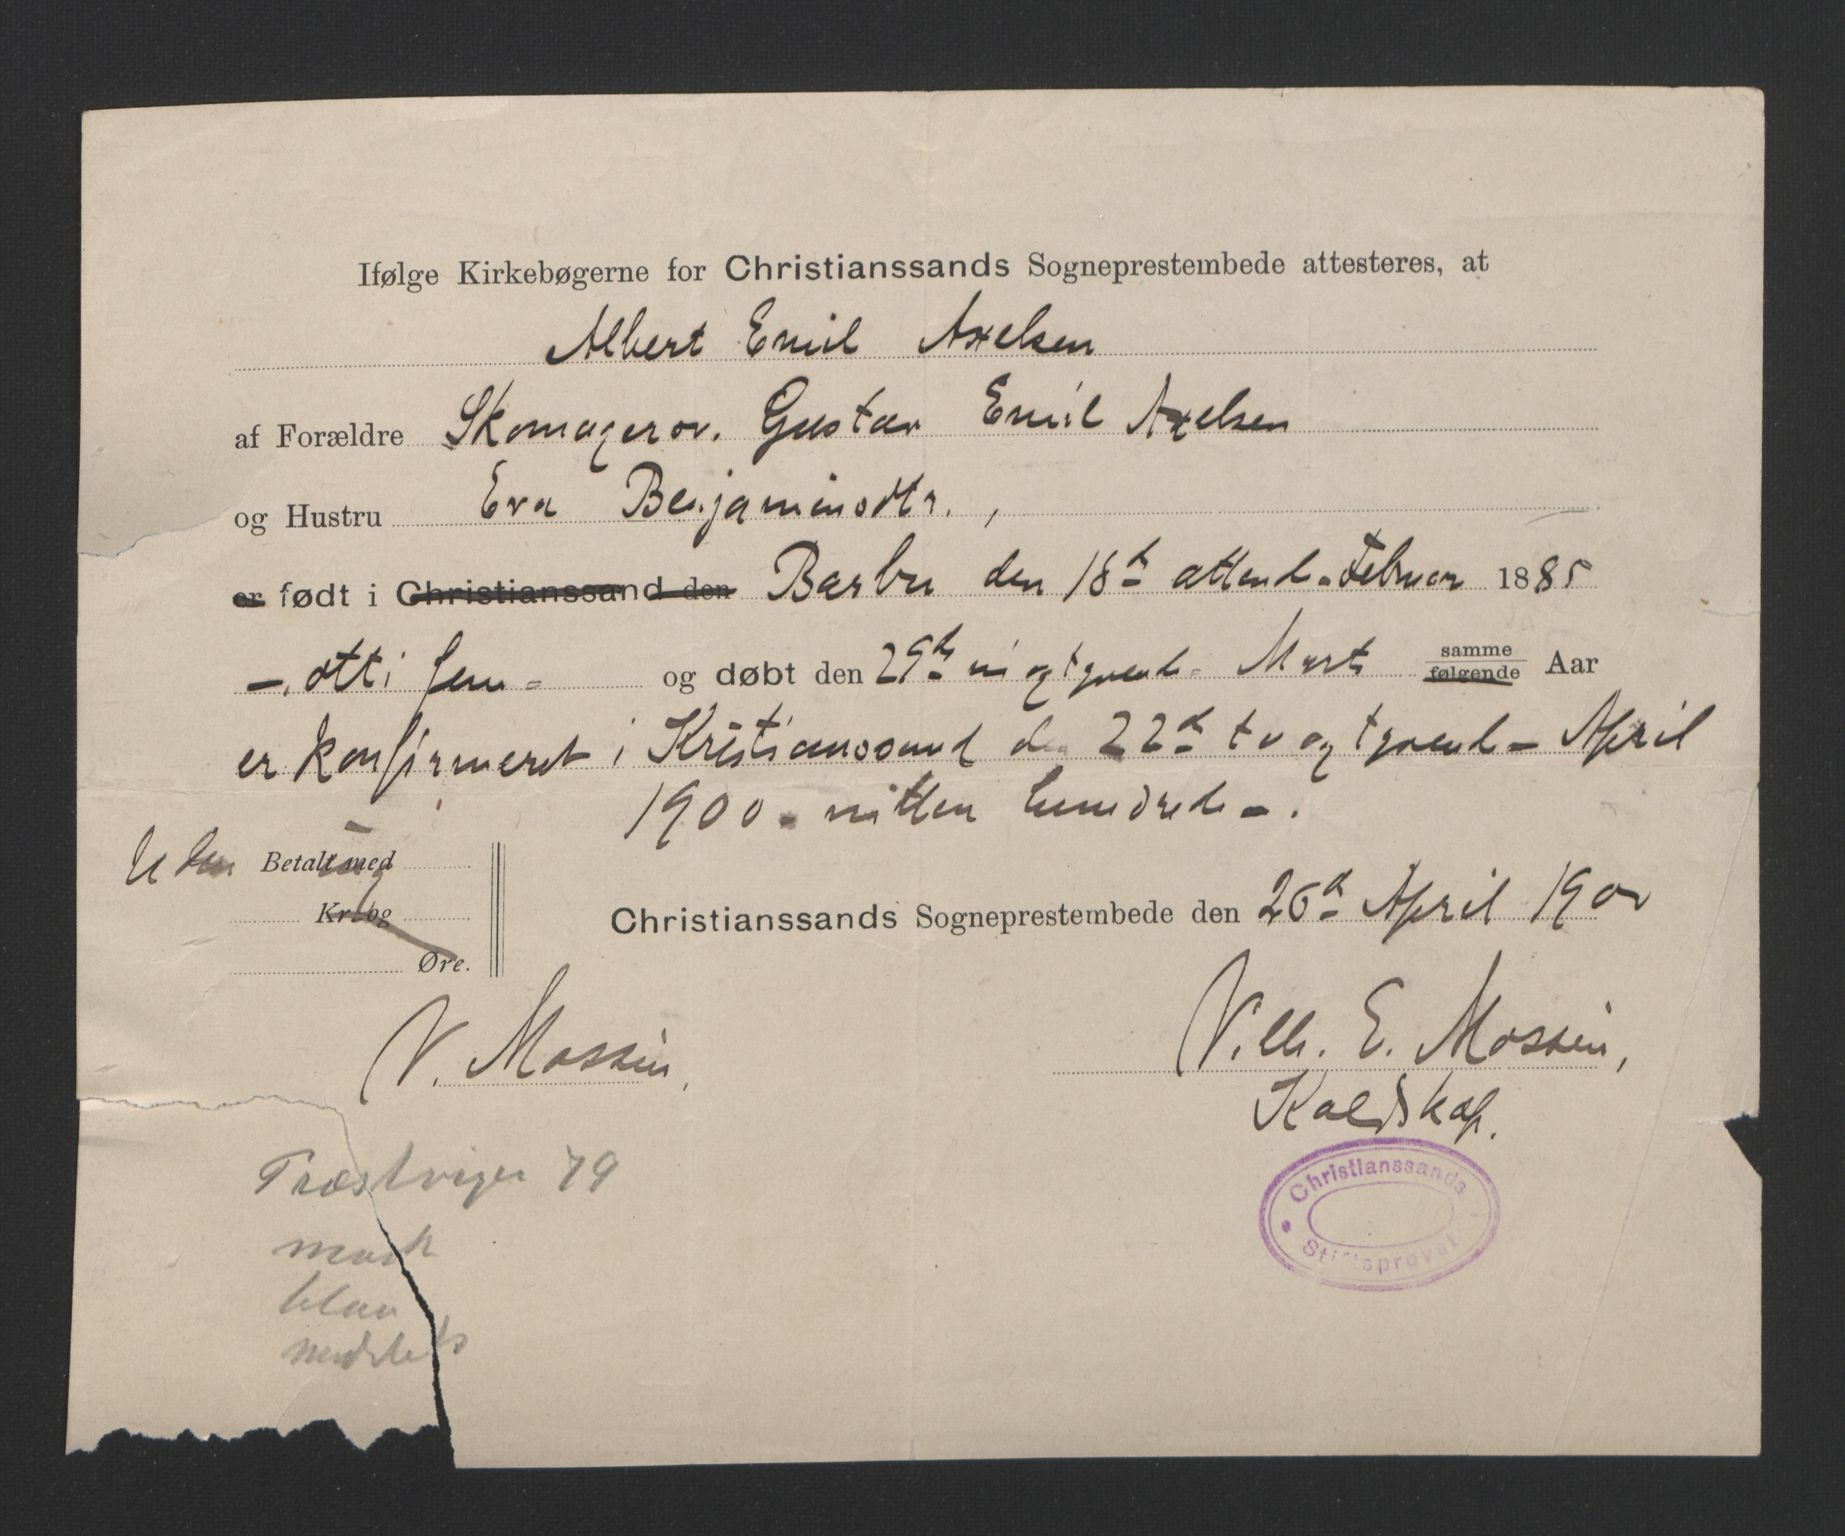 Ifølge Kirkebøgerne for Christianssands Sogneprestembede attesteres, at
Albert Emil Axelsen
af Forældre Skomagersv. Gustav Emil Axelsen
og Hustru Eva Benjaminsdtr.,
er født i Christianssand den Barbu den 18de attende Februar 1885
- otti fem - og døbt den 29de ni og tyvende Marts samme følgende Aar
er konfirmeret i Kristianssand den 22de to og tyvende - April
1900 - nitten hundrede -.
Uden Betalt med
Kr. og
Øre.
Christianssands Sogneprestembede den 26de April 1900
V. Mossin.
Vilh. E. Mossin,
Kaldskap.
Christianssands
Stiftsprovst
Træstviger 79
mørk
blaa